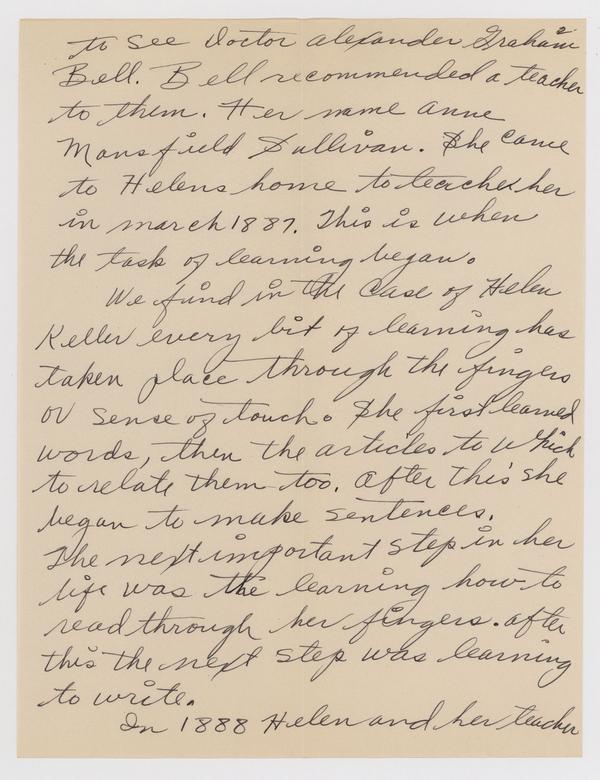 2
to see Doctor alexander Graham
Bell. Bell recommended a teacher
to them. Her name anne
Mansfield Sullivan. She came
to Helens home to teache her
in march 1887. This is when
the task of learning began.
We find in the Case of Helen
Keller every bit of learning has
taken place through the fingers
or sense of touch. She first learned
words, then the articles to which
to relate them too. after this she
began to make sentences.
The next important step in her
life was the learning how to
read through her fingers. after
this the next step was learning
to write.
In 1888 Helen and her teacher